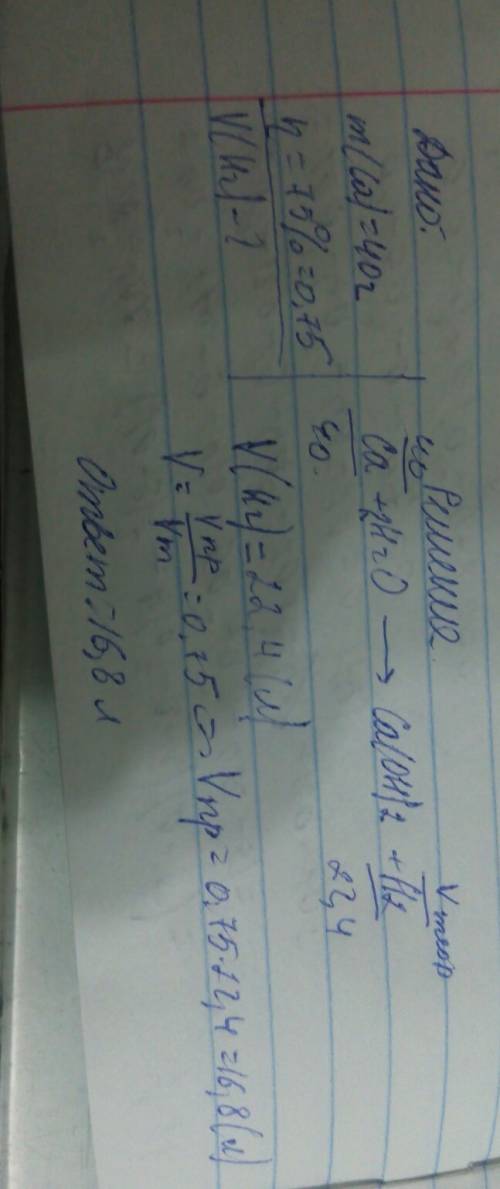 Дано:
m(Ca)=40г
η=75%=0,75
V(H2)-?
Решение
40 Vтеор
Ca + 2H2O → Ca(OH)2 + H2
40. 22,4
V(H2)=22,4(л)
V = Vпр/Vт = 0,75 => Vпр = 0,75·22,4=16,8(л)
Ответ: 16,8 л